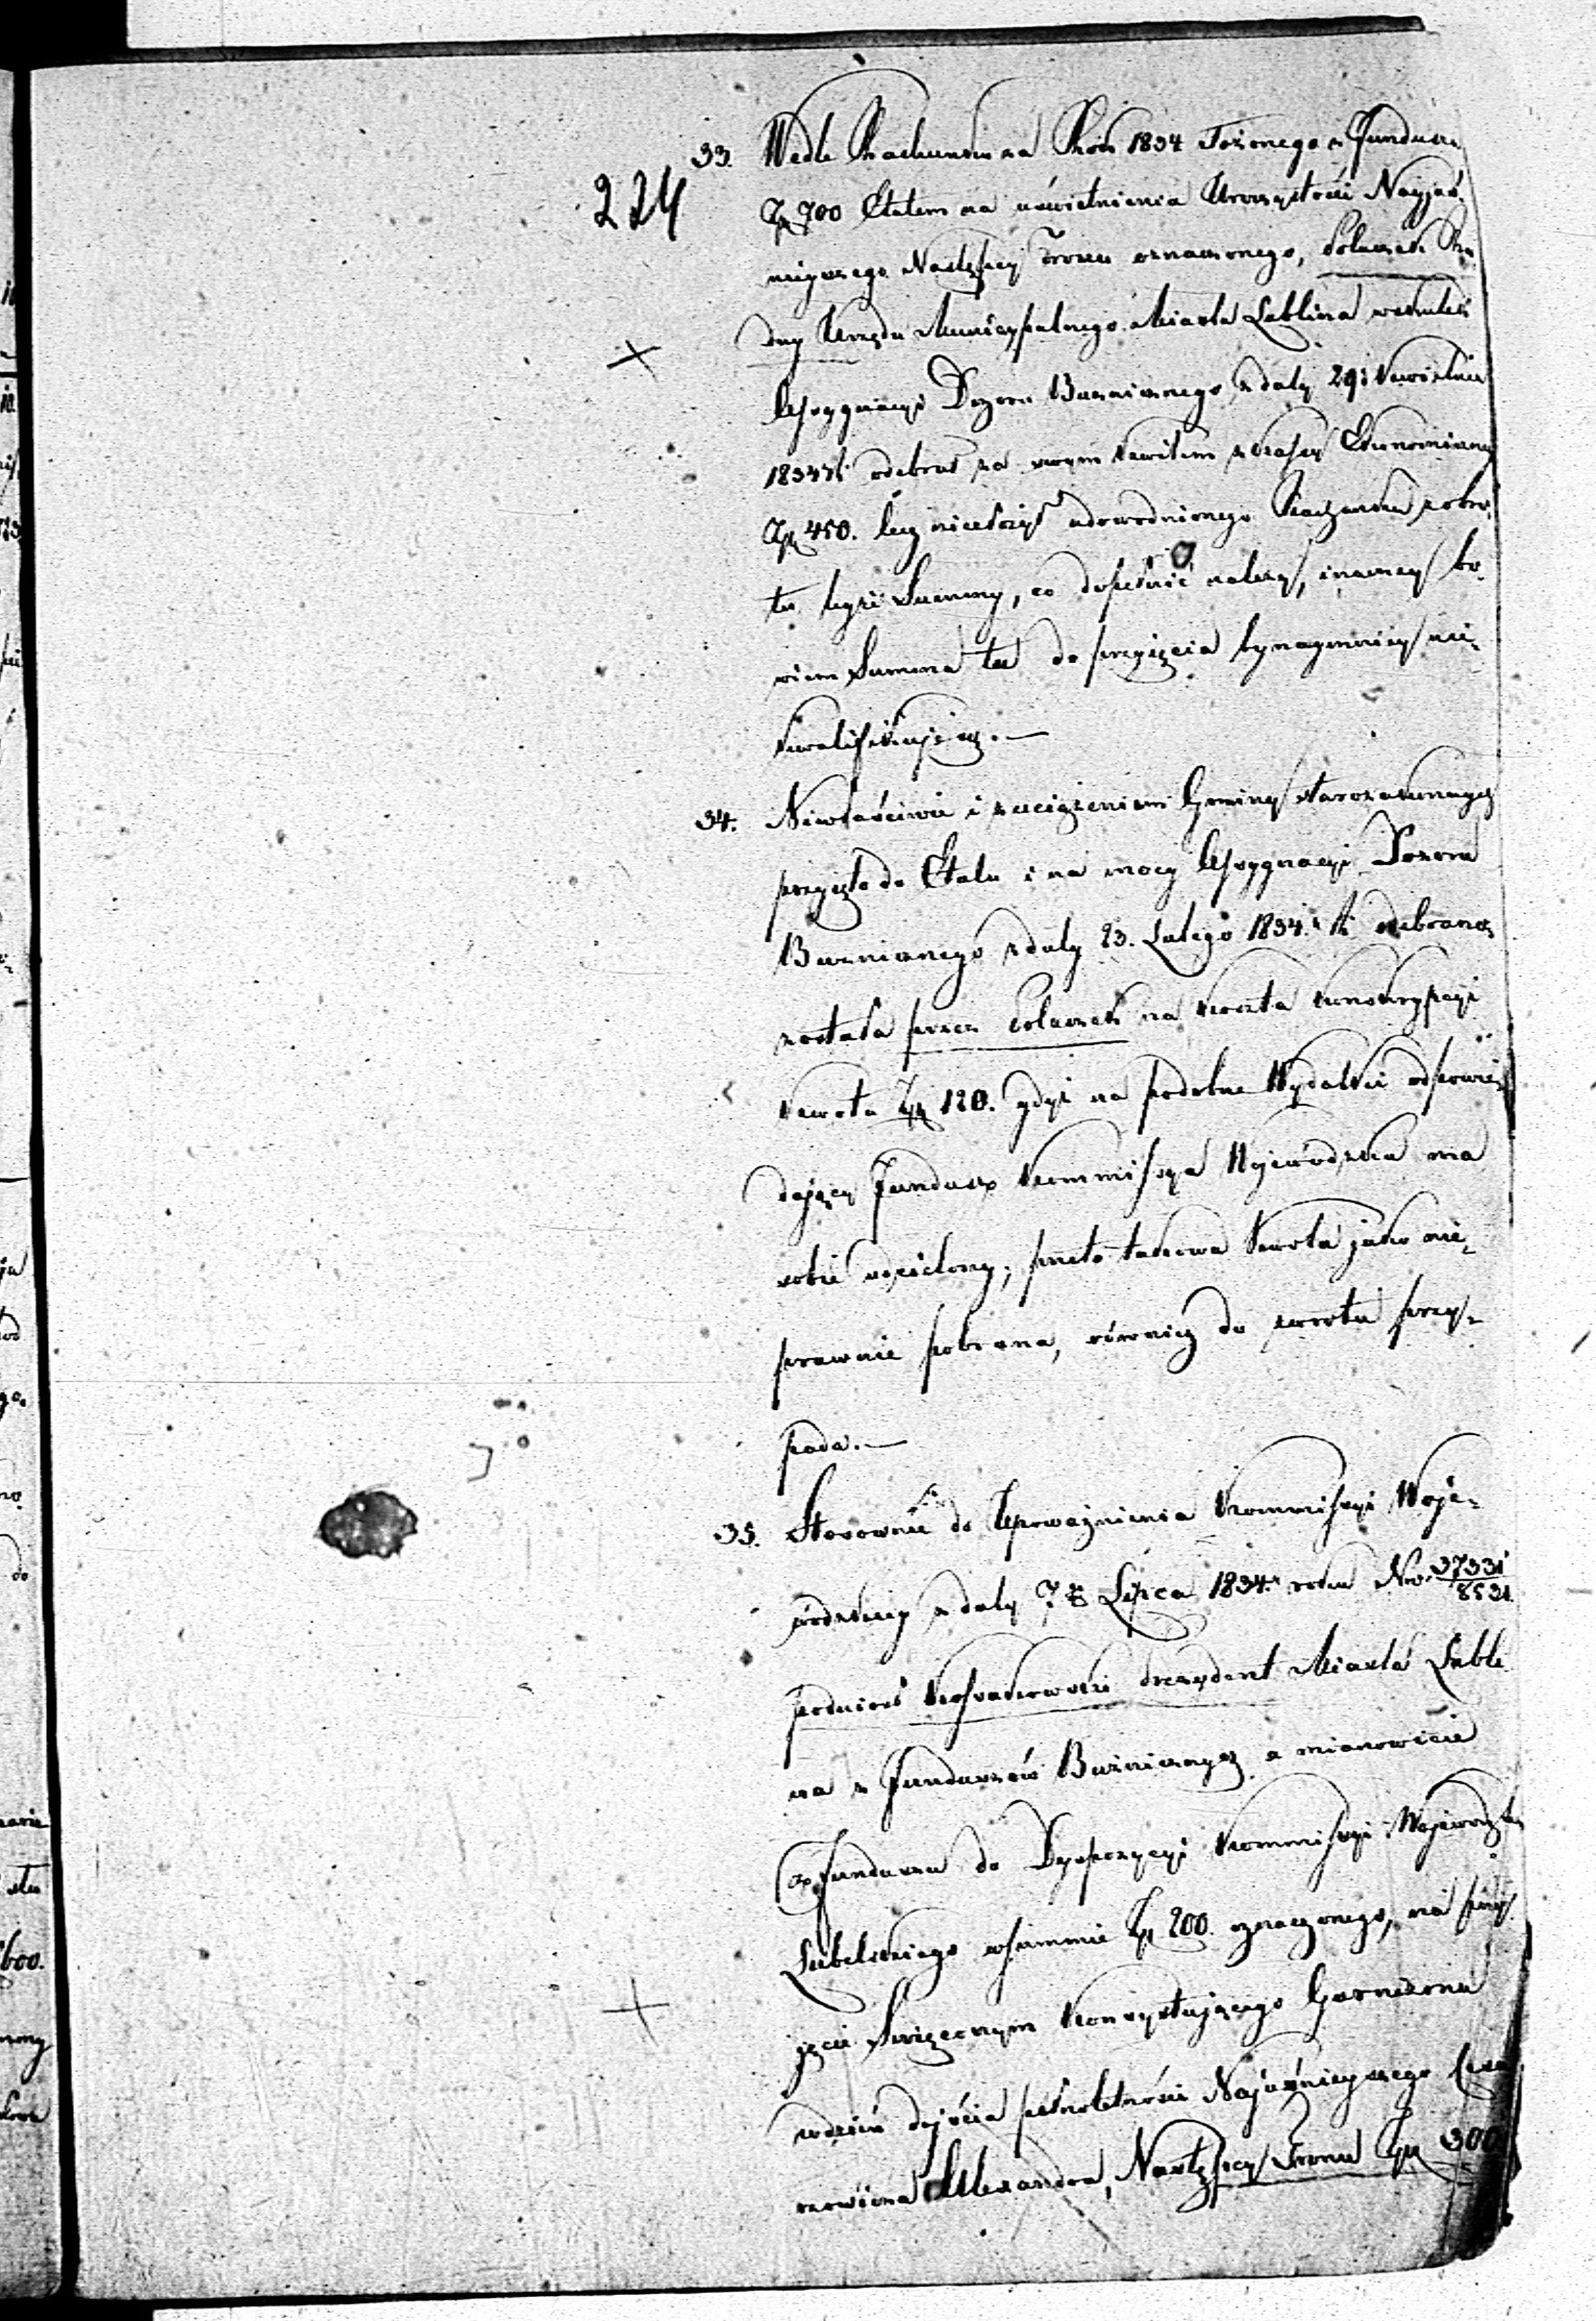 224
33. Wedle Rachunku za Rok 1834 złożonego z Funduszu
Zp 700 Etatem na uświetnienia Uroczystości Nayjaś-
nieyszego Następcy Tronu oznaczonego, Poluszek Ra
dny Urzędu Municypalnego Miasta Lublina wskutek
Assygnacyi Dozoru Bużniczego z daty 29 Kwietnia
1834 r. odebrał za swym kwitem z Kassy Ekonomiczney
Zp 450. lecz niezłożył udowodnionego Rachunku z obro-
tu teyże Summy, co dopełnić należy, inaczey bo-
wiem Summa ta do przyięcia bynaymniey nie-
kwalifikuje się.—
34. Niewłaściwie i z uciążeniem Gminy starozakonnych
przyięta do Etatu i na mocy Assygnacyi Dozoru
Bużniczego z daty 23. Lutego 1834. r. odebrana
została przez Poluszek na koszta konskrypcyi
kwota Zp 120. gdyż na podobne Wydatki odpowie-
dający Fundusz Kommissya Wojewódzka ma
sobie udzielony; przeto takowa kwota jako nie-
prawnie pobrana, również do zwrotu przy-
pada.—
35. Stosownie do Upoważnienia Kommissyi Woje-
wódzkiey z daty 7 Lipca 1834. roku Nro 37331/8531
podniósł Kossakowski Prezydent Miasta Lubli
na z Funduszów Bużniczych a mianowicie
z Funduszu do Dyspozycyi Kommissyi Wojewódz.
Lubelskiego w summie Zp 200. oznaczonego, na przy-
jęcie Święcznym konsystującego Garnizonu
w dzień dojścia pełnoletności Najjaśnieyszego Cesa
rzewicza Alexandra, Następcy Tronu Zp 300